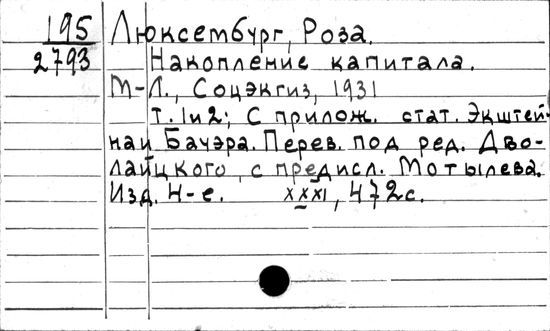 195 Люксембург, Роза.
2793 Накопление капитала.
М-Л., Соцэкгиз, 1931
т. 1 и 2; С прилож. стат. Экштей-
на и Бауэра. Перев. под ред. Дво-
лайцкого, с предисл. Мотылева.
Изд. 4-е. XXXI, 472 с.